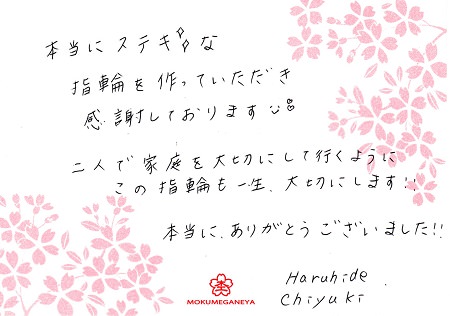 本当にステキな
指輪を作っていただき
感謝しております
二人で家庭を大切にして行くように
この指輪も一生、大切にします!!
本当に、ありがとうございました!!
Haruhide
Chiyuki
MOKUMEGANEYA